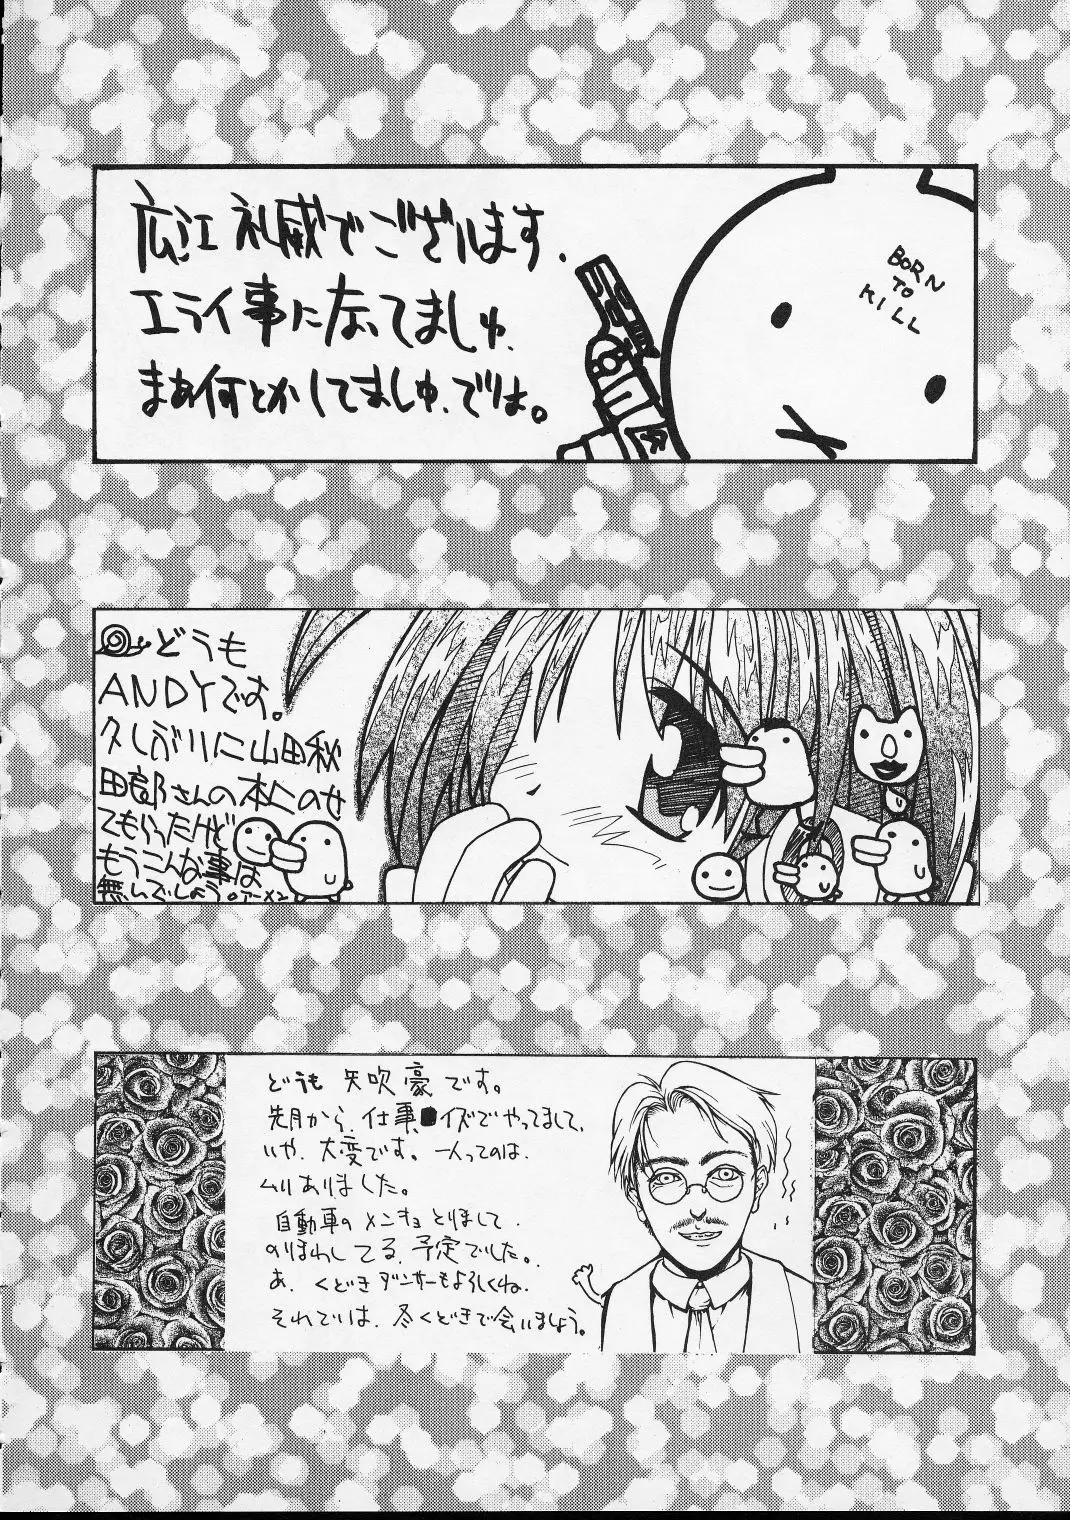 広江礼威でございます.
エライ事になってましゅ.
まぁ何とかしてましゅ.でわ。
BORN
TO
KILL
どうも
ANDYです。
久しぶりに山田秋
田部さんの本にのせ
てもらったけど
もうこんな事は
無いでしょう。アーメン
どうも 矢吹豪です。
先月から、仕事、イズでやってまして、
いや、大変です。一人ってのは、
ムリありました。
自動車のメンキョとりまして、
のりまわしてる、予定でした。
あ、くどきダンサーもよろしくね。
それでは、冬くどきで会いましょう。